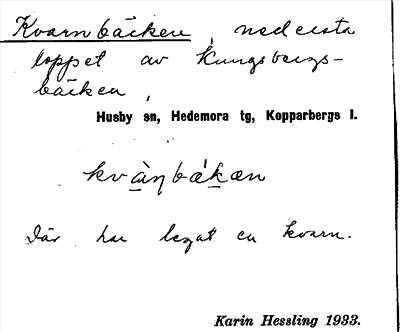 Kvarnbäcken, nedersta
loppet av Kungsbergs-
bäcken,
Husby sn, Hedemora tg, Kopparbergs l.
kvàṇbäkæn
Där har legat en kvarn.
Karin Hessling 1933.